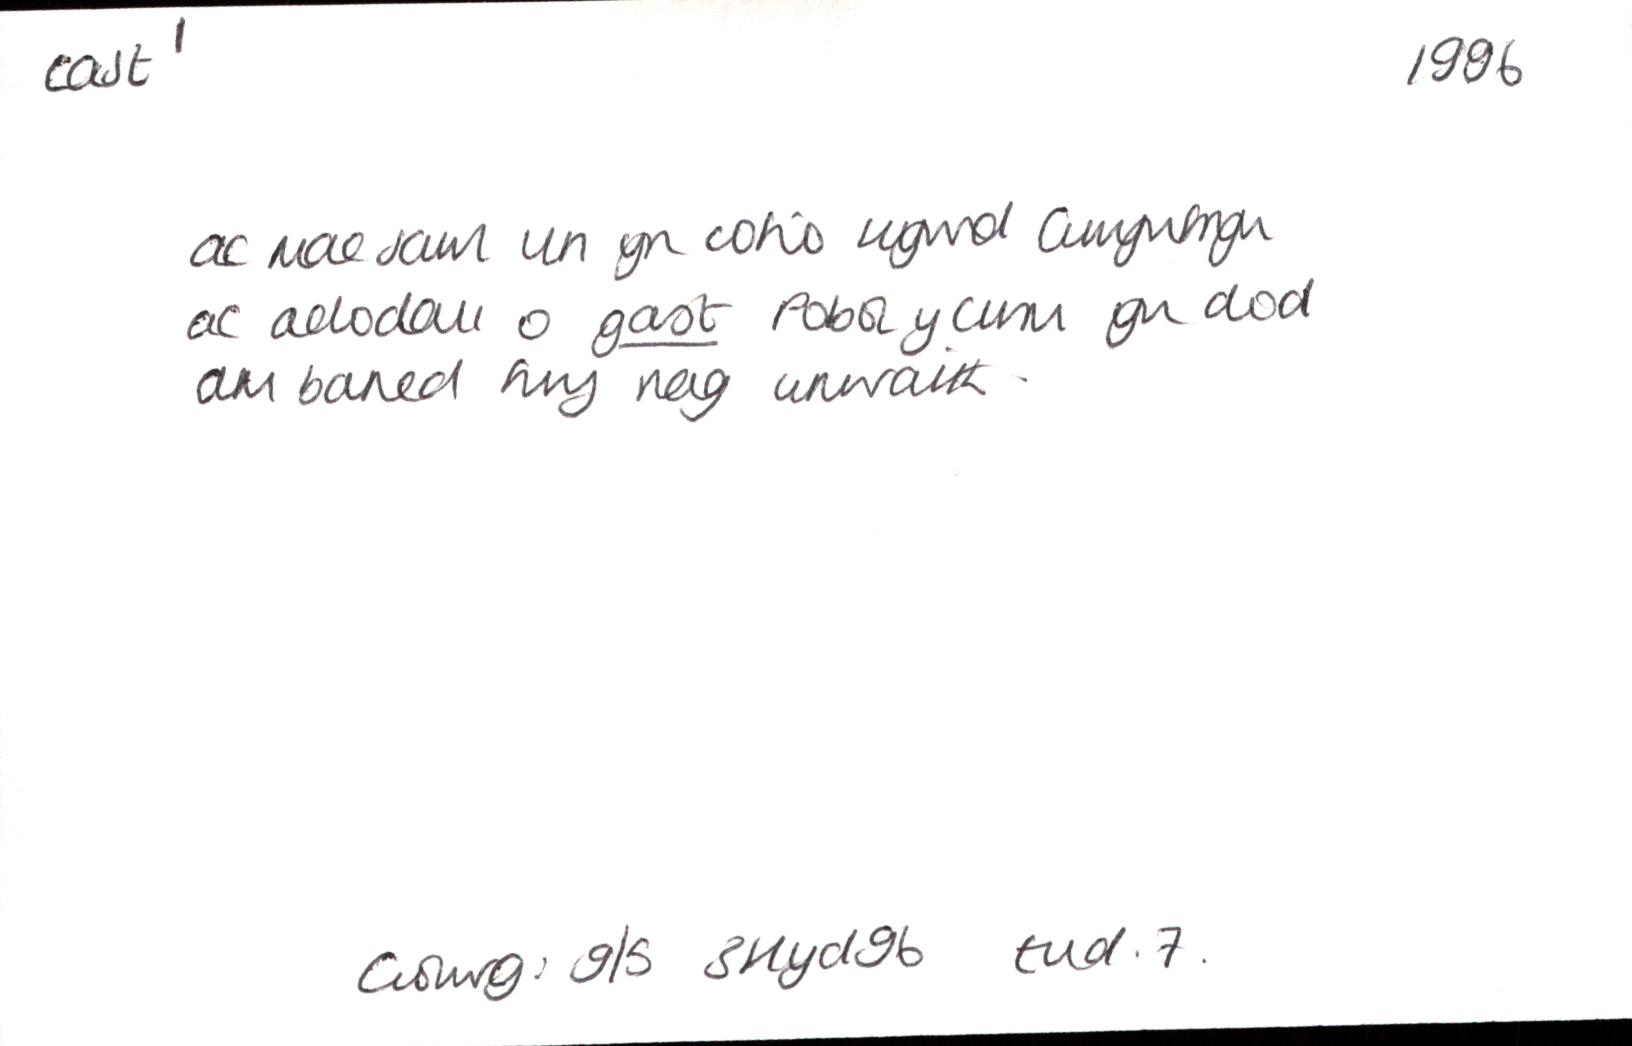 cast¹ 1996
ac mae sawl un yn cofio ciniawa
ac aelodau o gast Pobol y Cwm yn dod
am baned fwy nag unwaith.
9/5 3Hyd96 tud. 7.